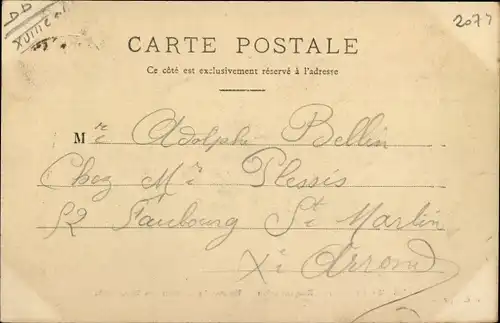 DD
XVIIIe
2077
CARTE POSTALE
Ce côté est exclusivement réservé à l'adresse
Mre Adolphe Bellin
Chez Mr Plessis
52 Faubourg St Martin
Xe Arrond